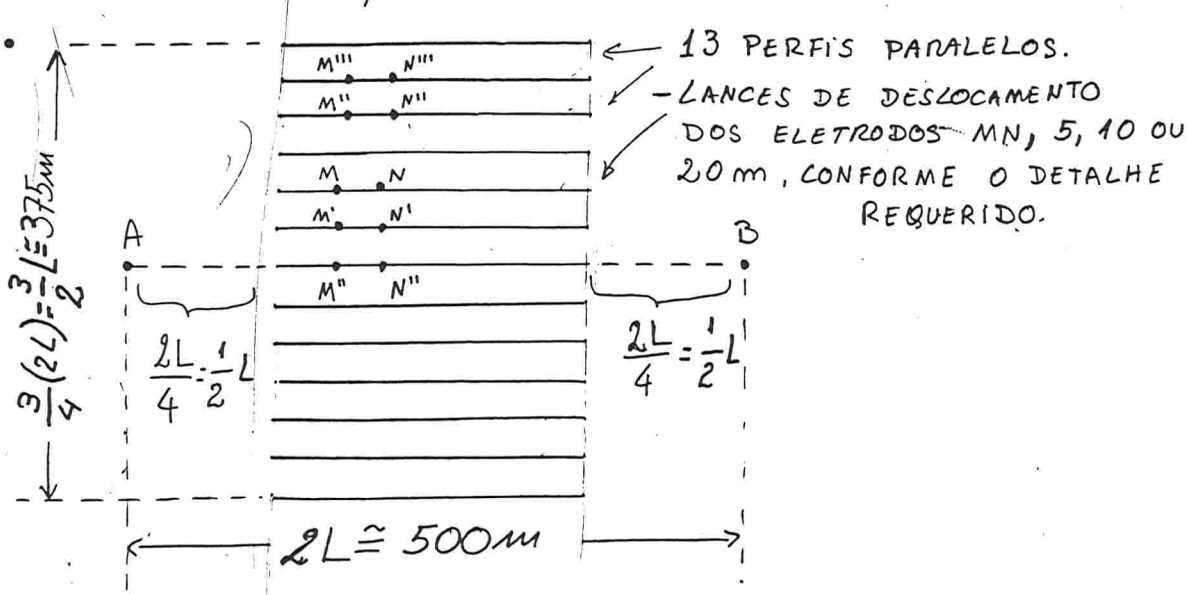 13 PERFIS PARALELOS.
- LANCES DE DESLOCAMENTO
DOS ELETRODOS MN, 5, 10 OU
20 m, CONFORME O DETALHE
REQUERIDO.
M''' N'''
M'' N''
M N
M' N'
A B
M'' N''
3/4 (2L) = 3/2 L ≅ 375m
2L/4 = 1/2 L
2L/4 = 1/2 L
2L ≅ 500m